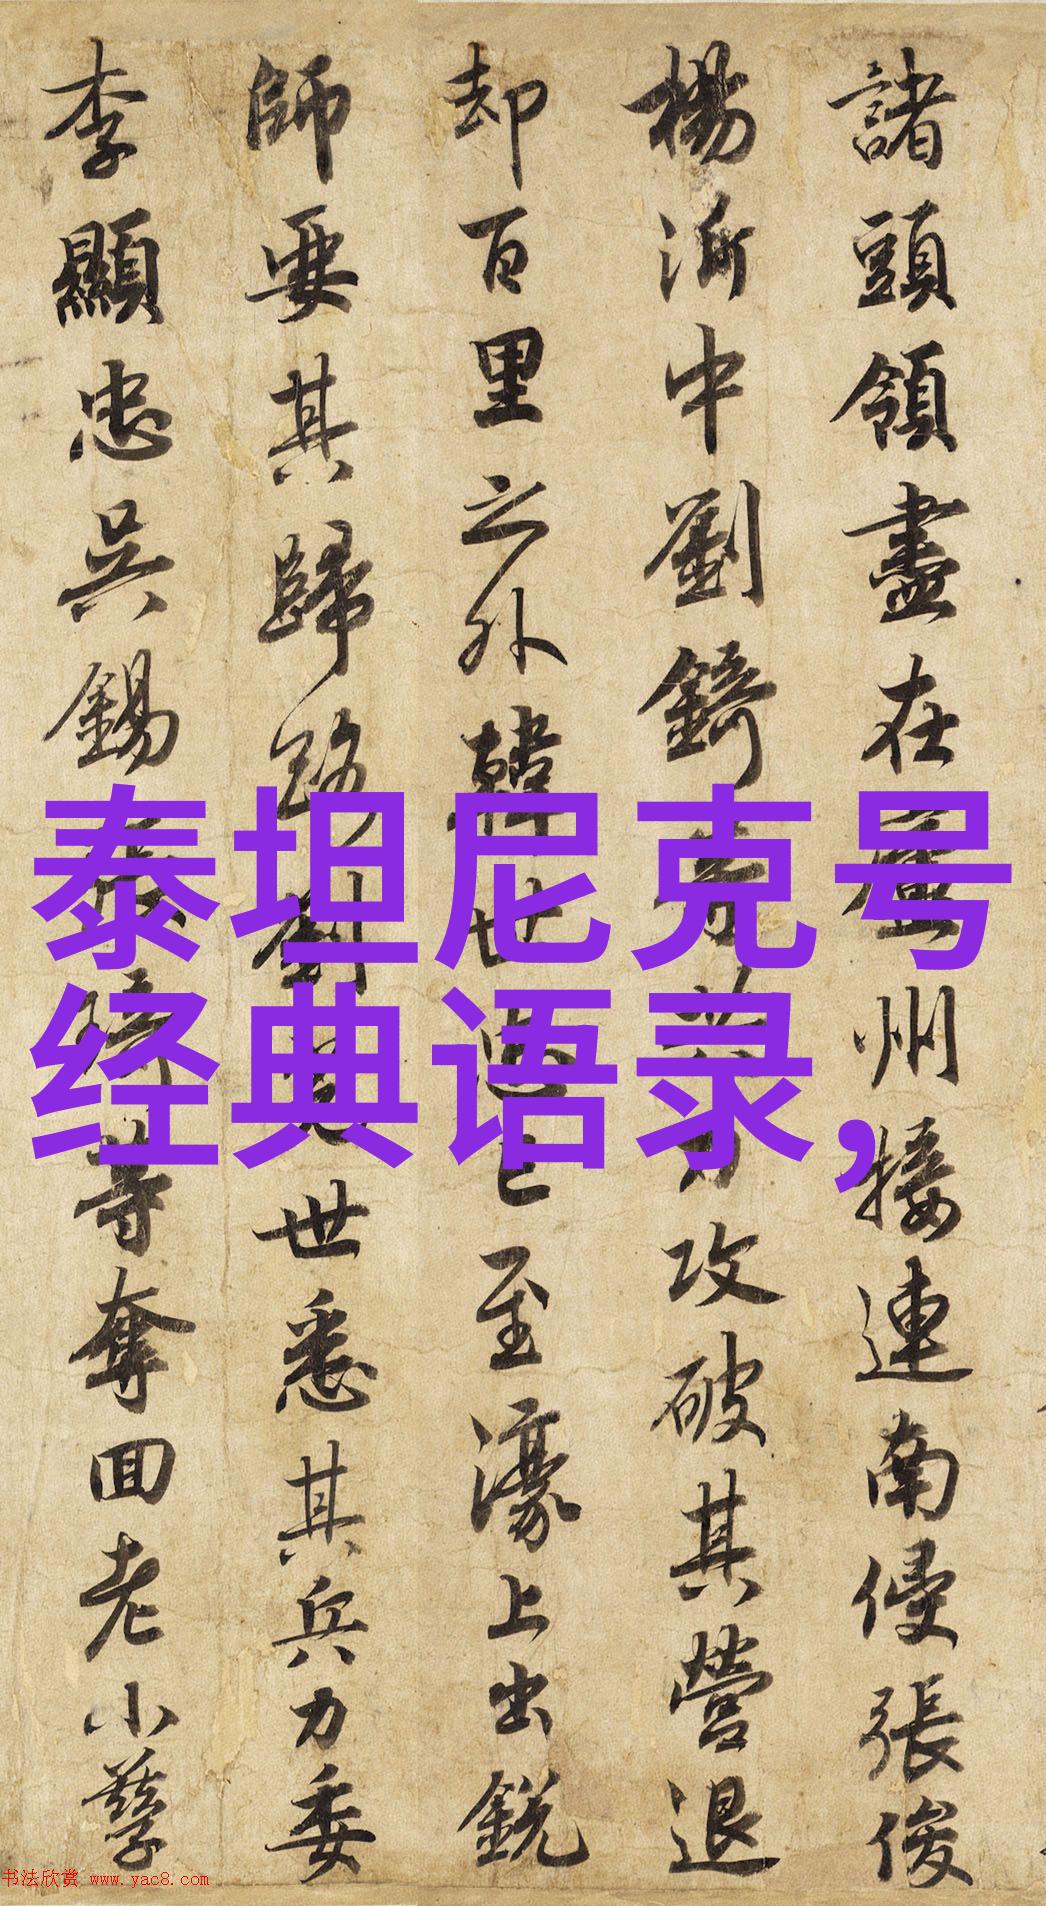 諸頭領盡在廬州接連南侵張俊
楊沂中劉錡等力攻破其營退
却百里之外韓世忠已至濠上出銳
師要其歸路劉光世悉其兵力委
李顯忠吳錫張琦等奪回老小孳
泰坦尼克号
经典语录,
书法欣赏 www.yac8.com